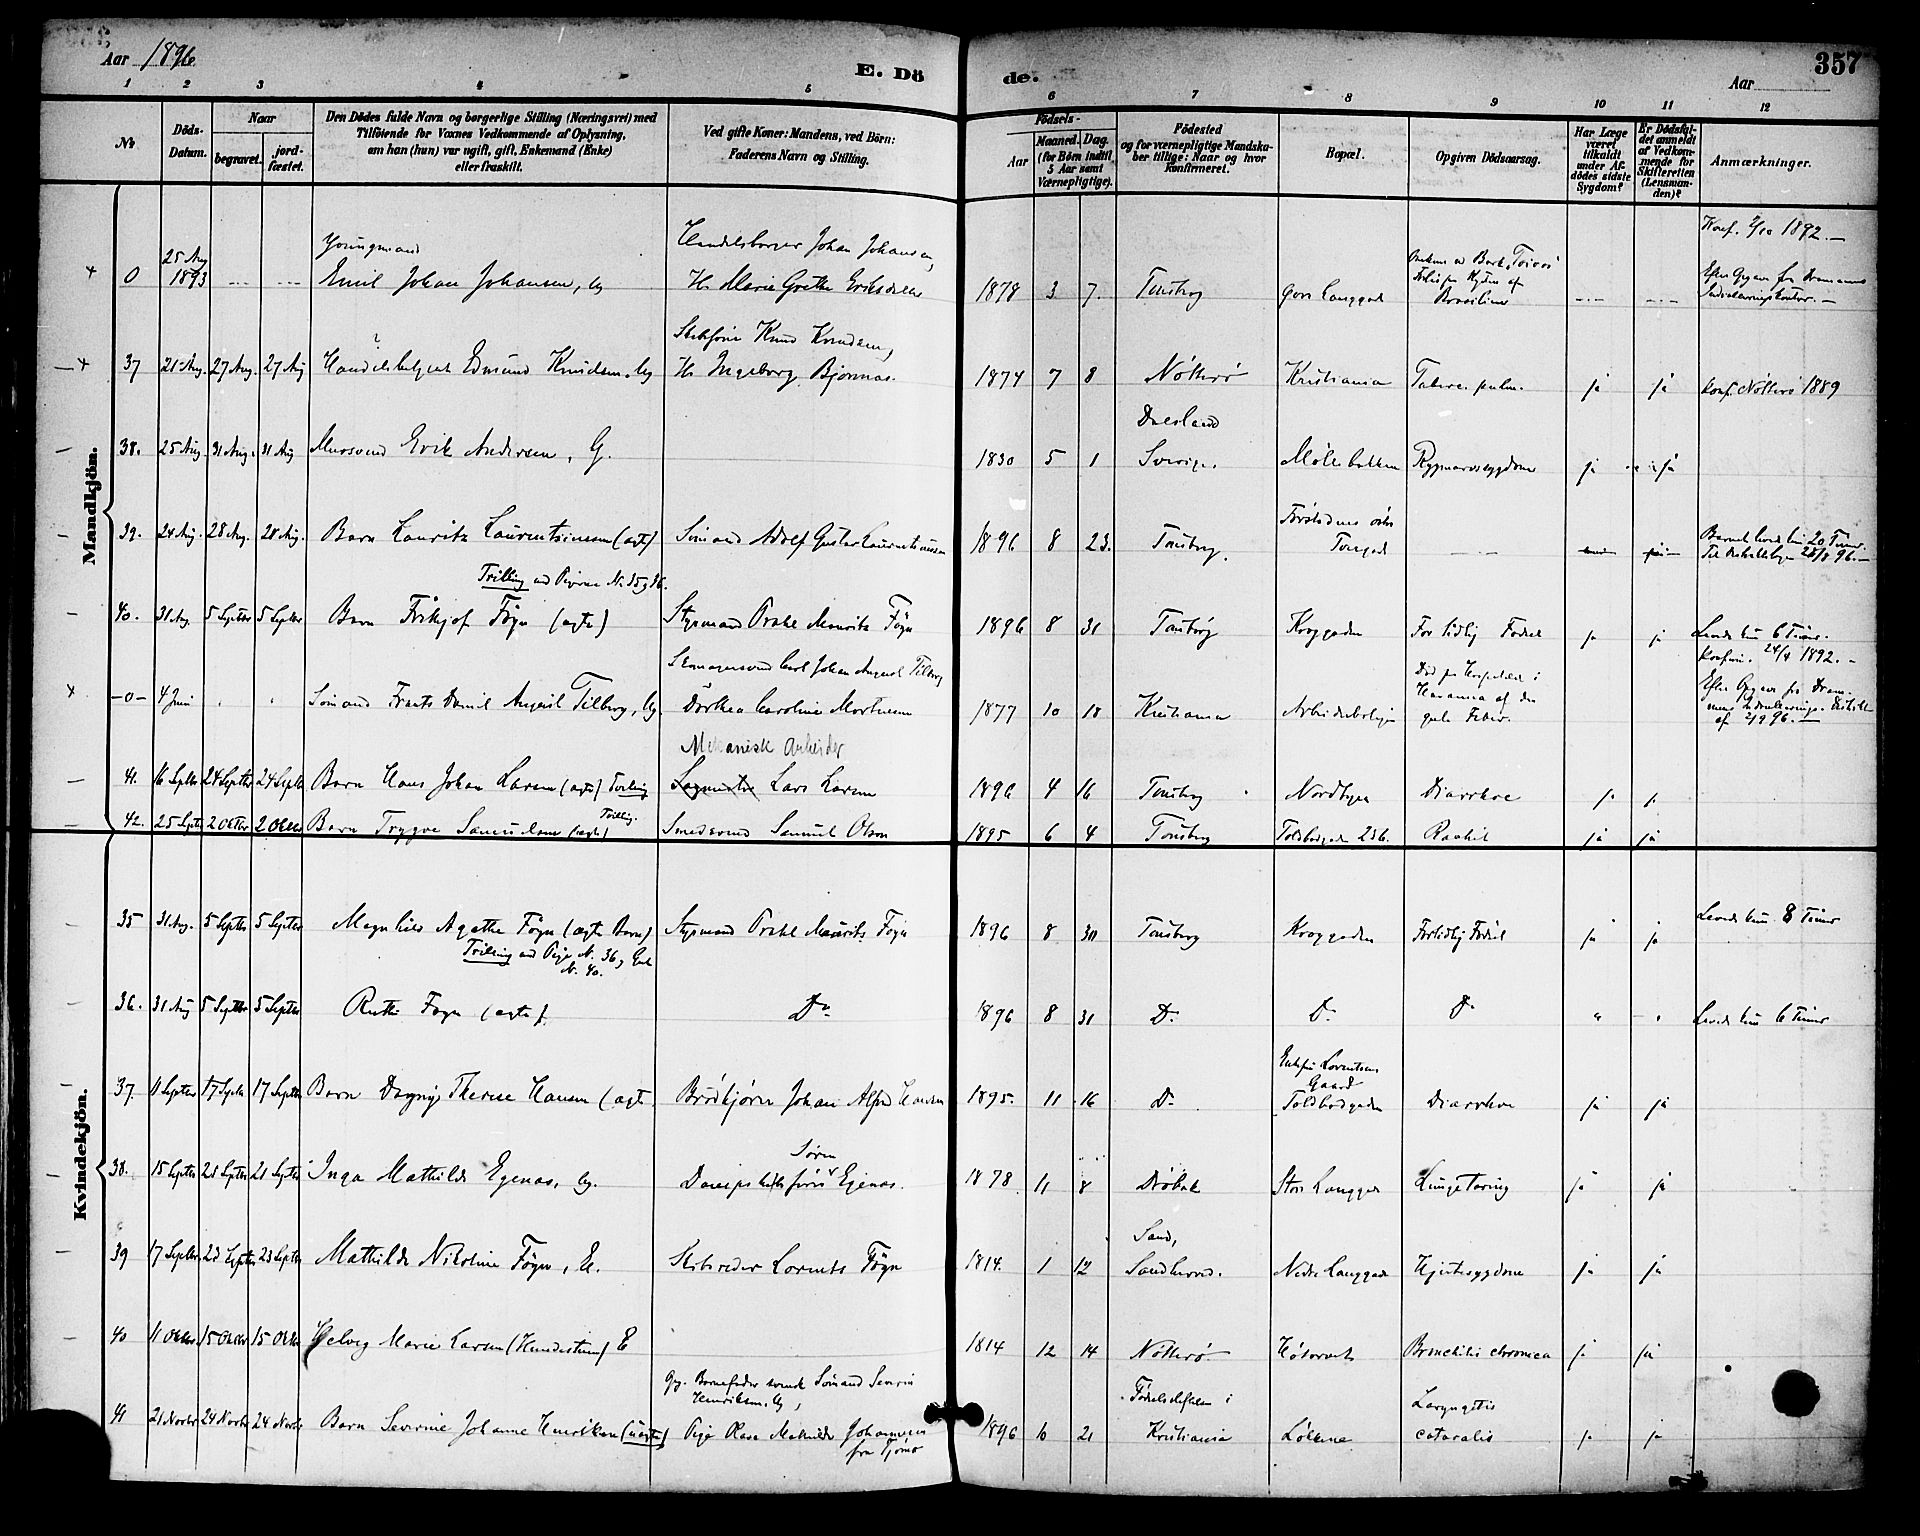 Aar 1896
E. Döde.
Aar
357
1 2 3 4 5 6 7 8 9 10 11 12
No
Döds-Datum.
Naar
begravet.
jord-fæstet.
Den Dödes fulde Navn og borgerlige Stilling (Næringsvei) med
Tilföiende for Voxnes Vedkommende af Oplysning,
om han (hun) var ugift, gift, Enkemand (Enke)
eller fraskilt.
Ved gifte Koner: Mandens, ved Börn:
Faderens Navn og Stilling.
Födsels-
Aar
Maaned. Dag.
(for Börn indtil
5 Aar samt
Værnepligtige).
Födested
og for værnepligtige Mandska-
ber tillige: Naar og hvor
konfirmeret.
Bopæl.
Opgiven Dödsaarsag.
Har Læge
været
tilkaldt
under Af-
dödes sidste
Sygdom?
Er Dödsfal-
det anmeldt
af Vedkom-
mende for
Skifteretten
(Lensman-
den)?
Anmærkninger.
Mandkjön.
0 25 Aug 1893 Emil Johan Johansen, Ug
Johan Johansen,
H. Marie Grethe
1878 3 7. Tønsberg
Konf. 2/10 1892.
37 21 Aug. 27 Aug. 27 Aug Edmund Knudsen, Ug
Knud Knudsen,
H. Ingeborg
1874 7 8 Nøtterø Kristiania ja ja Konf. Nøtterø 1889
38. 25 Aug. 31 Aug. 31 Aug Murersvend Erik Andersen, G.
1830 5 1 Dalsland Sverige. Møllebakken Rygmarvssygdom ja ja
39. 24 Aug. 28 Aug. 28 Aug. Barn Lauritz Laurentsiusen (ægte) Sømand Adolf Gustav Laurentsiussen
1896 8 23. Tønsberg.
Barnet levede kun 20 Timer.
Trilling med Pigerne N. 35 og 36.
40. 31 Aug. 5 Septbr 5 Septbr Barn Frithjof Føyn (ægte) Styrmand Prahl Mauritz Føyn
1896 8 31 Tønsberg Kroggaden For tidlig Fødsel ja ja Levede kun 6 Timer.
-0- 4 Juni Sømand Frants Daniel August Tilberg, Ug.
Skomagersvend Carl Johan August Tilberg
Dorthea Caroline
1877 10 18 Kristiania
Død paa Hospitalet i
Havanna af den
gule Feber.
Konfirm. 24/4 1892.
Mekanisk Arbeider
41. 16 Septbr 24 Septbr 24 Septbr Barn Hans Johan Larsen (ægte) Tvilling Lars Larsen
1896 4 16 Tønsberg Nordbyen Diarrhoe ja ja
42. 25 Septbr 2 Oktbr 2 Oktbr Barn Trygve Samuelsen (ægte) Tvilling. Smedsvend Samuel Olsen
1895 6 4 Tønsberg Toldbodgaden 236. Rachit ja ja
Kvindekjön.
35 31 Aug. 5 Septbr 5 Septbr Agathe Føyn (ægte Barn) Styrmand Prahl Mauritz Føyn
Trilling med Pige N. 36 og Gut N. 40.
1896 8 30 Tønsberg Kroggaden Fortidlig Fødsel ja ja Levede kun 8 Timer
36. 31 Aug 5 Septbr 5 Septbr Ruth Føyn (ægte). Do
1896 8 31 Do Do Do " " Levede kun 6 Timer
37. 11 Septbr 17 Septbr 17 Septbr Barn Dagny Therese Hansen (ægte Johan Alfred Hansen
1895. 11 16 Do
Gaard
Toldbodgaden Diarrhoe ja ja
38. 15 Septbr 21 Septbr 21 Septbr Inga Mathilde Egenas, Ug. Dampskibsfører Søren Egenas.
1878 11 8 Drøbak Store Langgade Lungetæring ja ja
39 17 Septbr. 23 Septbr 23 Septbr Mathilde Nikoline Føyn, E. Skibsreder Lorents Føyn
1814. 1 12 Sand, Sandherred. Nedre Langgade Hjertesygdom ja ja
40 11 Oktbr 15 Oktbr 15 Oktbr Helvig Marie Larsen E
1814 12 14 Nøtterø Bronchitis chronica ja ja
41 21 Novbr 24 Novbr 24 Novbr Barn Severine Johanne Henriksen (uægte)
Opg. Barnefader svensk Sømand Severin
Henriksen, Ug,
Pige Mathilde Johannesen
fra Tjømø
1896 10 21 Fødselsstiftelsen i Kristiania Løkkene
Laryngitis
cataralis ja ja